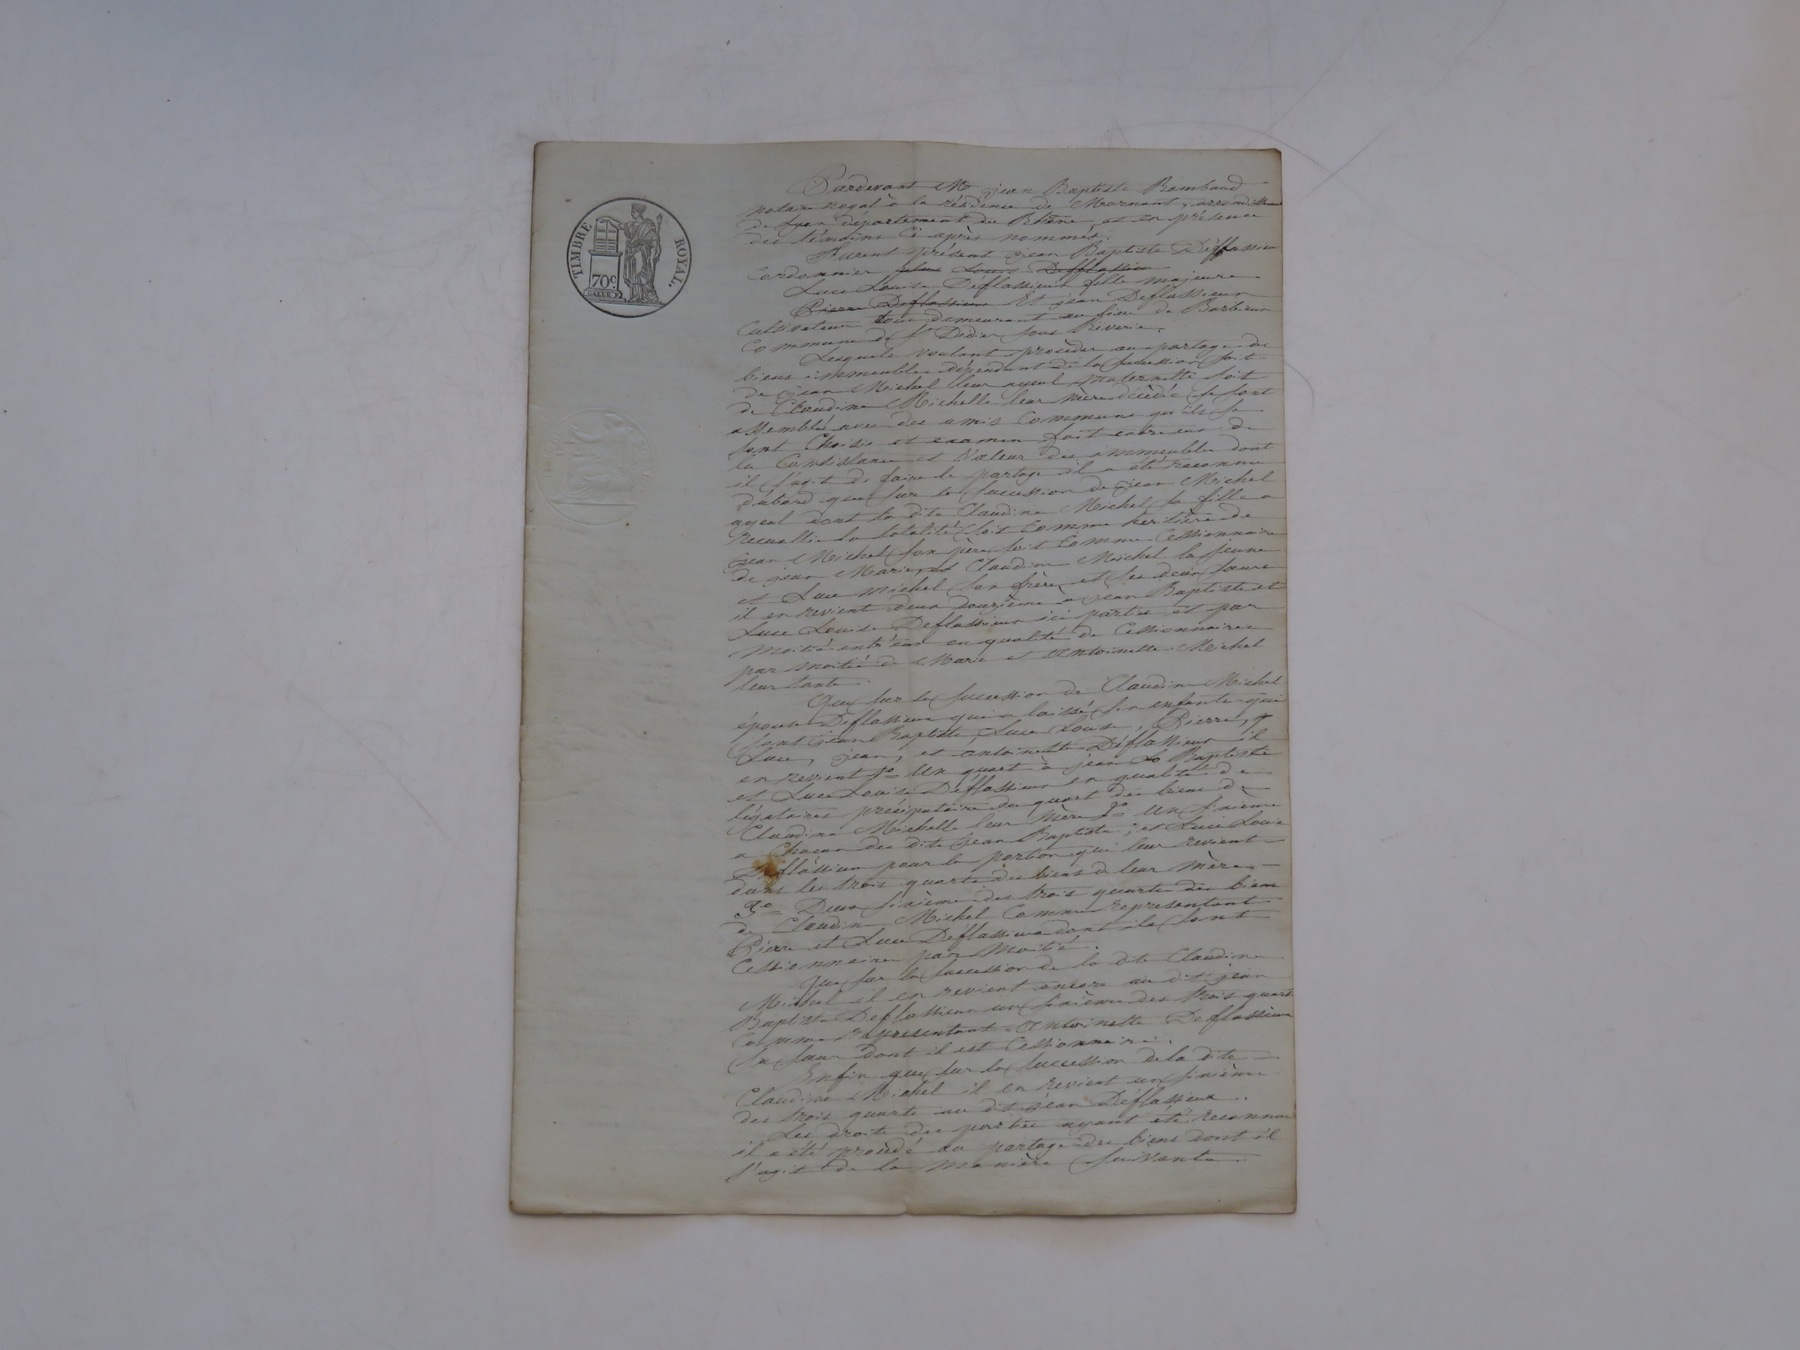 TIMBRE ROYAL.
70c.
Pardevant Me jean Baptiste Rambaud
notaire royal à la résidence de Mornant, arrondissement
de Lyon département du Rhône, et en présence
des témoins ci après nommés.
Furent présent jean Baptiste Déflassieux
Cordonnier Louis Defflassieu
Luce Louise Déflassieux fille majeure
Pierre Deflassieux Et jean Deflassieux
Cultivateur tous demeurant au lieu de Barbieux
Commune de St Didier sous Riverie.
Lesquels voulant procéder au partage des
biens immeubles dépendant de la succession soit
de jean Michel leur ayeul maternelle soit
de Claudine Michelle leur mère décédée se sont
assemblé avec des amis Commune qu'ils se
sont Choisi et examen fait entre eux de
la Consistance et Valeur des immeubles dont
il s'agit de faire le partage il a été reconnu
d'abord que sur la succession de jean Michel
ayeul dont la dite Claudine Michel sa fille a
recueillie la totalité soit Comme heritière de
jean Michel son père soit Comme Cessionnaire
de jean Marie, Claudine Michel la jeune
et Luce Michel son frère et ses deux sœurs
il en revient deux douzième a jean Baptiste et
Luce Louise Deflassieux ici partie et par
moitié entr'eux en qualité de Cessionnaires
par moitié de Marie et Antoinette Michel
leur tante.
Que sur la succession de Claudine Michel
épouse Deflassieux qui a laissé six enfants qui
sont jean Baptiste, Luce Louise, Pierre,
Luce, jean, et antoinette Déflassieux il
en revient 1o Un quart à jean Baptiste
et Luce Louise Déflassieux en qualité de
légataires préciputaire du quart des biens de
Claudine Michelle leur mère 2o Un sixième
a Chacun des dits jean Baptiste, et Luce Louise
Deflassieux pour la portion qui leur revient
dans les trois quarts des biens de leur mère.
3o Deux sixième des trois quarts des biens
de Claudine Michel Comme representant
Pierre et Luce Deflassieux dont ils sont
Cessionnaires par Moitié.
Que sur la succession de la dite Claudine
Michel il en revient encore au dit jean
Baptiste Deflassieux un sixième des trois quarts
Comme representant Antoinette Deflassieux
sa sœur dont il est Cessionnaire.
Enfin que sur la succession de la dite
Claudine Michel il en revient un sixième
des trois quarts au dit jean Déflassieux.
Les droits des parties ayant été reconnus
il a été procédé au partage des biens dont il
s'agit de la manière suivante